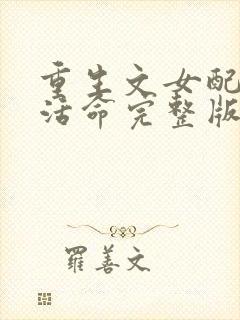 重生文女配
活命完整版
羅善文